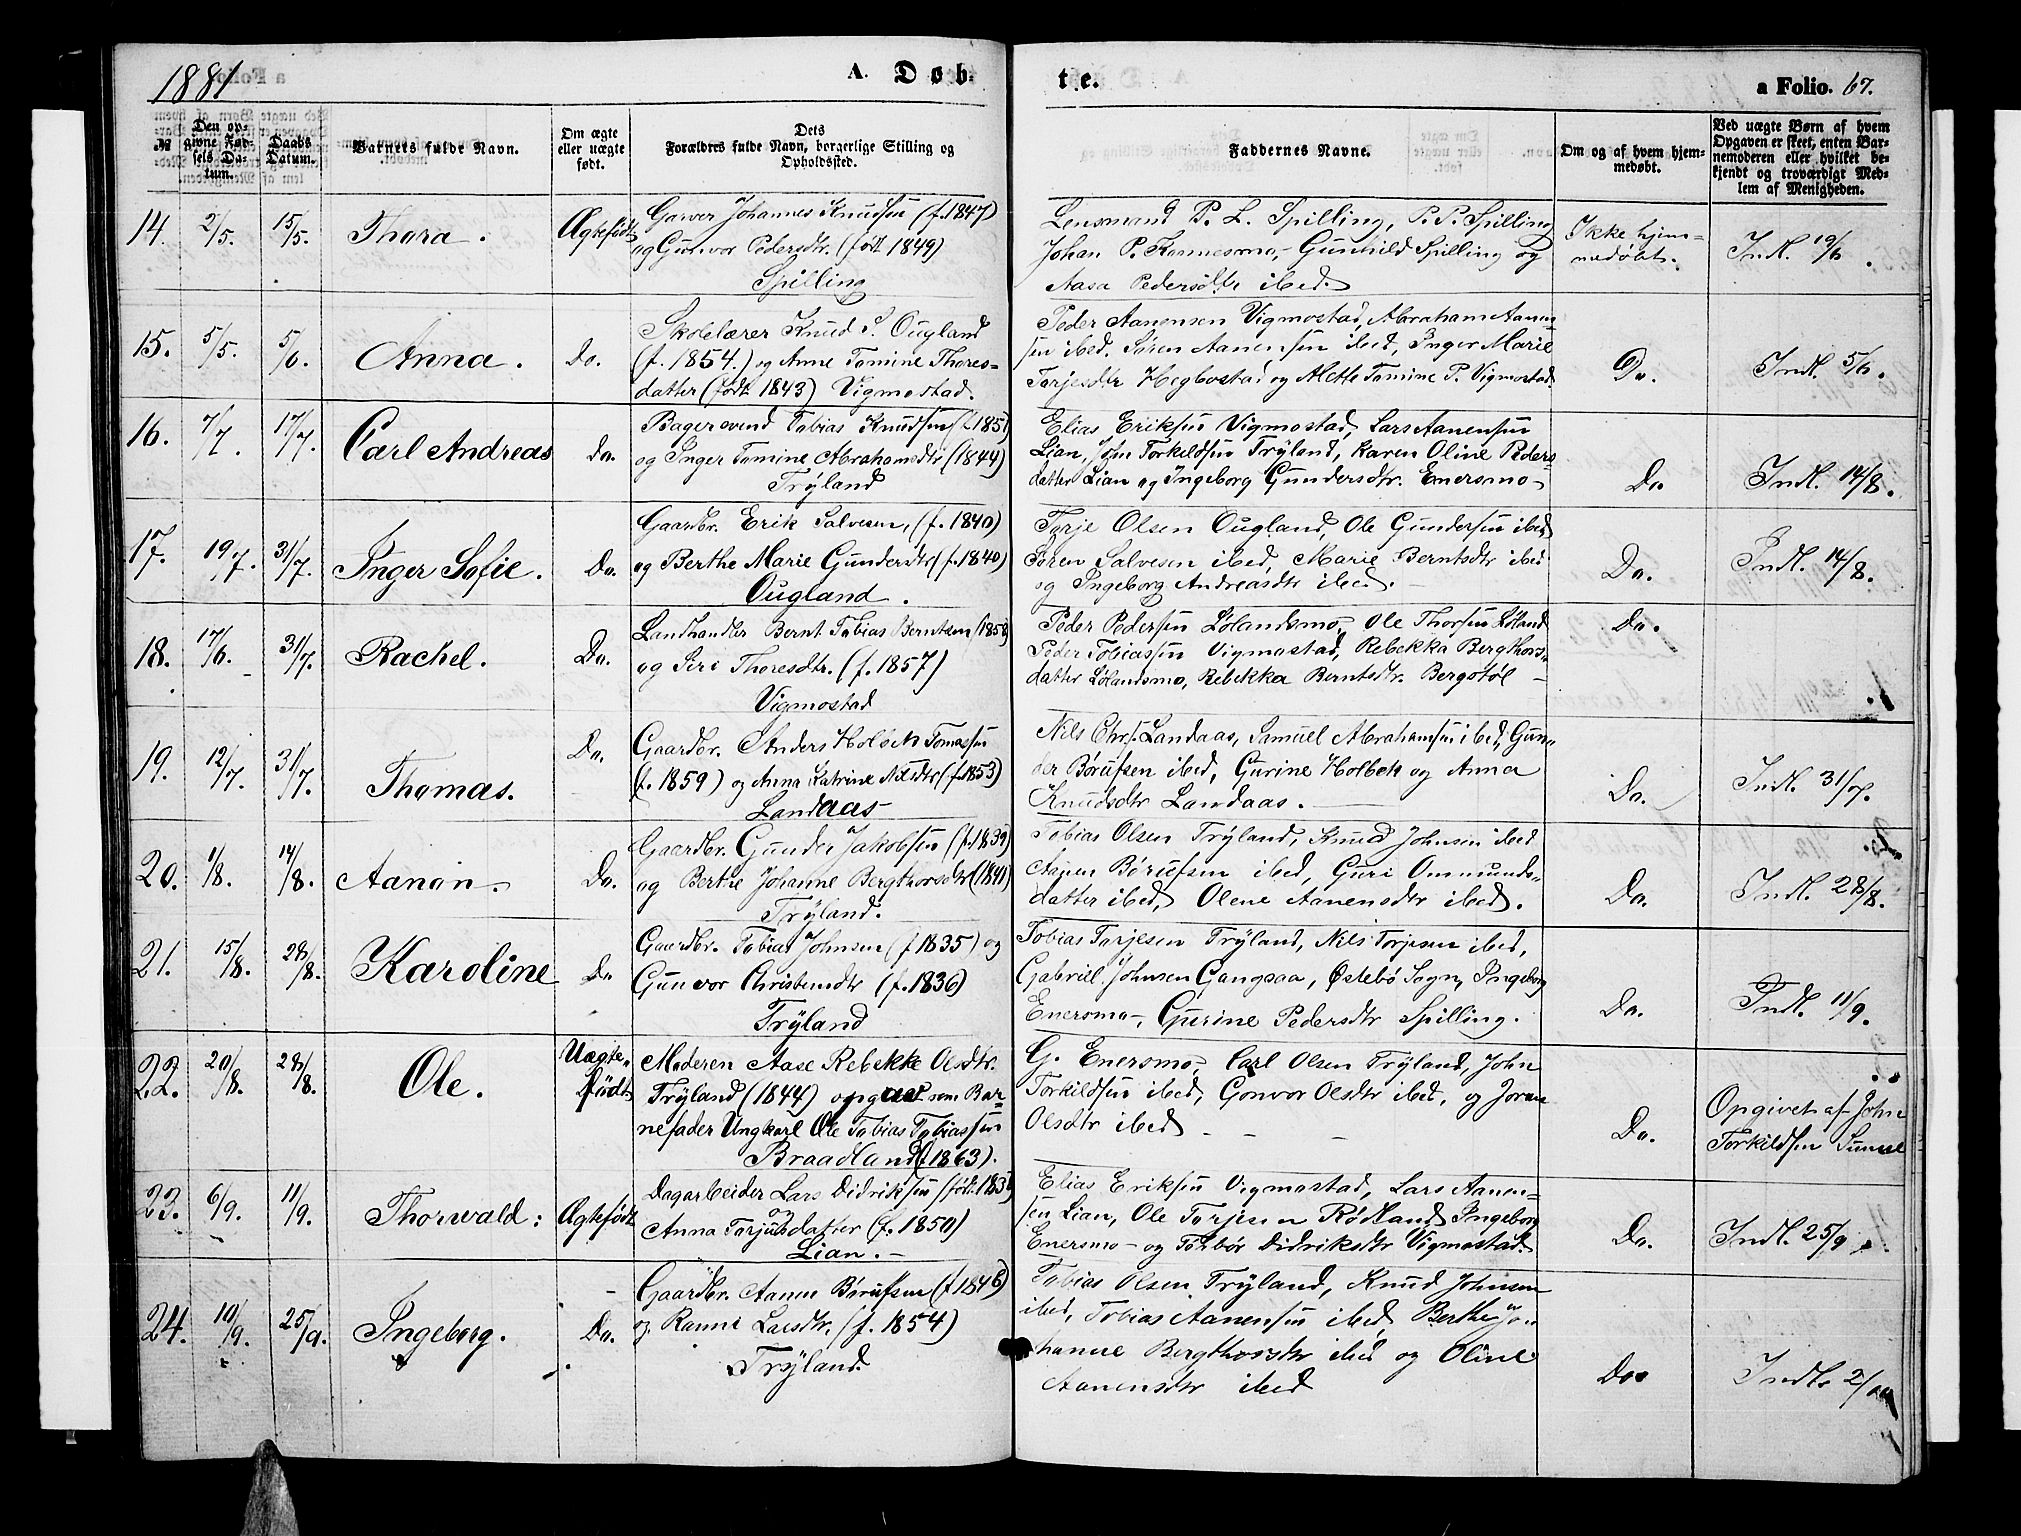 1881
A. Døb-
te.
a Folio. 67.
№
Den op-
givne Fød-
sels Da-
tum.
Daabs
Datum.
Barnets fulde Navn.
Om ægte
eller uægte
født.
Dets
Forældres fulde Navn, borgerlige Stilling og
Opholdssted.
Faddernes Navne.
Om og af hvem hjem-
medøbt.
Ved uægte Børn af hvem
Opgaven er skeet, enten Bar-
nemoderen eller hvilket be-
kjendt og troværdigt Med-
lem af Menigheden.
14. 2/5. 15/5. Thora. Ægtefødt
Garver Johannes Knudsen (f. 1847)
og Gunvor Pedersdtr. (født 1849)
Spilling
Lensmand P. L. Spilling, P. P. Spilling
Johan P. Konnesmo, Gunhild Spilling og
Aasa Pedersdtr ibed.
Ikke hjem-
medøbt.
Indl. 19/6.
15. 5/5. 5/6. Anna. Do.
Skolelærer Knud S. Ougland
(f. 1854.) og Anne Tomine Thores-
datter (født 1843) Vigmostad.
Peder Aanensen Vigmostad, Abraham Aanen-
sen ibed, Søren Aanensen ibed, Inger Marie
Tarjesdtr Hegbostad og Alette Tomine P. Vigmostad
Do.
Indl. 5/6.
16. 7/7. 17/7. Carl Andreas Do.
Bagersvend Tobias Knudsen (f. 1851)
og Inger Tomine Abrahamsdtr (1844)
Trÿland
Elias Eriksen Vigmostad, Lars Aanensen
Lian, John Torkildsen Trÿland, Karen Oline Peders-
datter Lian og Ingeborg Gundersdtr. Enersmo-
Do
Indl. 14/8.
17. 19/7. 31/7. Inger Sofie. Do.
Gaardbr. Erik Salvesen, (f. 1840)
og Berthe Marie Gundersdtr (f. 1840)
Ougland.
Torje Olsen Ougland, Ole Gundersen ibed
Søren Salvesen ibed, Marie Berntsdtr ibed
og Ingeborg Andreasdtr ibed.
Do.
Indl. 14/8.
18. 17/6. 31/7. Rachel. Do.
Landhandler Bernt Tobias Berntsen (1858)
og Siri Thoresdtr. (f. 1857)
Vigmostad
Peder Pedersen Lølandsmo, Ole Thorsen Løland
Peder Tobiassen Vigmostad, Rebekka Bergthors-
datter Lølandsmo, Rebekka Berntsdtr. Bergstøl -
Do.
19. 12/7. 31/7. Thomas. Do.
Gaardbr. Anders Holbek Tomassen
(f. 1859) og Anna Katrine Nilsdtr (f. 1853)
Landaas
Nils Chrs. Landaas, Samuel Abrahamsen ibed, Gun-
der Børufsen ibed, Gurine Holbek og Anna
Knudsdtr Landaas.
Do.
Indl. 31/7.
20. 1/8. 14/8. Aanon. Do.
Gaardbr. Gunder Jakobsen (f. 1839)
og Berthe Johanne Bergthorsdtr (1841)
Trÿland.
Tobias Olsen Trÿland, Knud Johnsen ibed
Aanen Børufsen ibed, Guri Ommunds-
datter ibed, Olene Aanensdtr ibed.
Do.
Indl. 28/8.
21. 15/8. 28/8. Karoline Do
Gaardbr. Tobias Johnsen (f 1835) og
Gunvor Christensdtr (f. 1836)
Trÿland
Tobias Tarjesen Trÿland, Nils Torjesen ibed,
Gabriel Johnsen Gangsaa, Østebö Sogn, Ingeborg
Enersmo-, Gurine Pedersdtr Spilling.
Do.
Indl. 11/9.
22. 20/8. 28/8. Ole. Uægte-
født
Moderen Aase Rebekke Olsdtr.
Trÿland (1844) opgav som Bar-
nefader Ungkarl Ole Tobias Tobiassen
Braadland (f. 1863).
G. Enersmo, Carl Olsen Trÿland, John
Torkildsen ibed, Gonvor Olsdtr ibed, og Joran
Olsdtr ibed
Do.
Opgivet af John
Torkildsen
23. 6/9. 11/9. Thorwald: Ægtefødt
Dagarbeider Lars Didriksen (født. 183
og
Anna Tarjusdatter (f. 1850)
Lian.-
Elias Eriksen Vigmostad, Lars Aanen-
sen Lian, Ole Torjesen Rødland, Ingeborg
Enersmo- og Torbör Didriksdtr Vigmostad.
Do.
Indl. 25/9.
24. 10/9. 25/9. Ingeborg. Do.
Gaardbr. Aanen Børufsen (f 1846)
og Ranni Larsdtr. (f. 1854)
Trÿland.
Tobias Olsen Trÿland, Knud Johnsen
ibed, Tobias Aanensen ibed Berthe Jo-
hanne Bergthorsdtr ibed og Oline
Aanensdtr ibed
Do.
Indl. 2/10